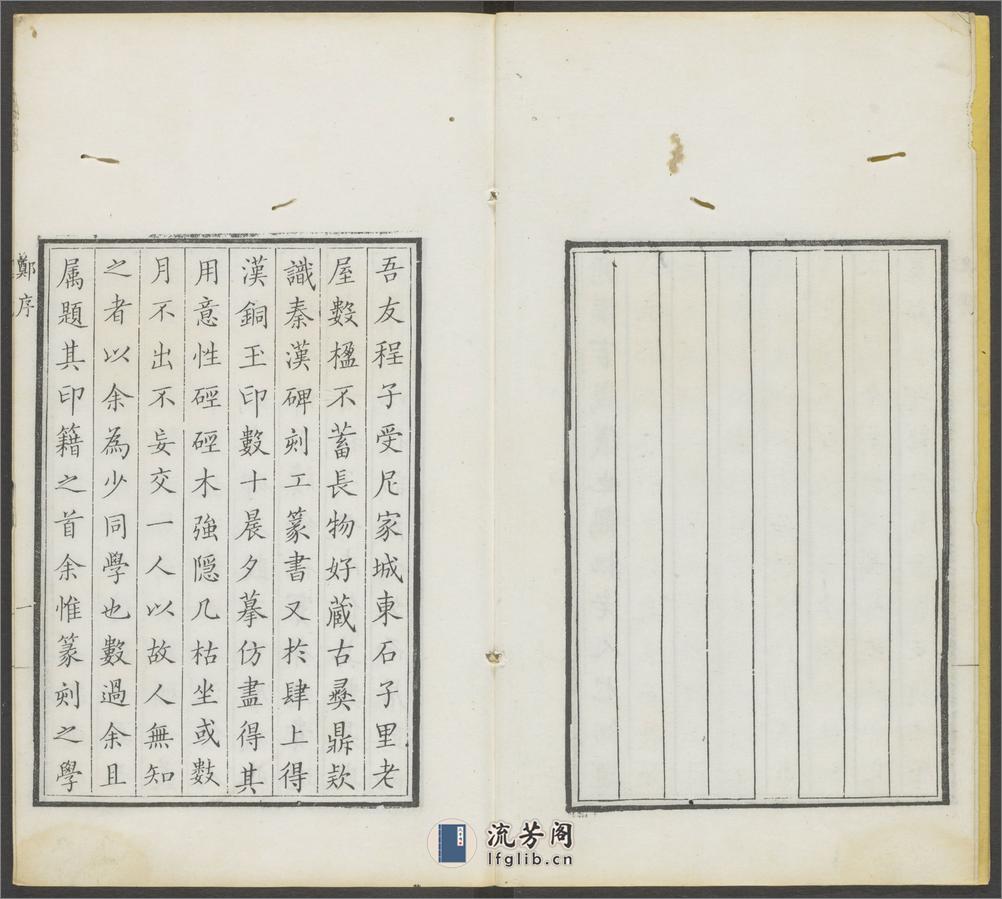 吾友程子受尼家城東石子里老
屋數楹不蓄長物好蔵古彜鼎欵
識秦漢碑刻工篆書又於肆上得
漢銅玉印數十晨夕摹仿盡得其
用意性硜硜木強隱几枯坐或數
月不出不妄交一人以故人無知
之者以余為少同學也數過余且
属題其印籍之首余惟篆刻之學
鄭序
一
流芳阁
lfglib.cn